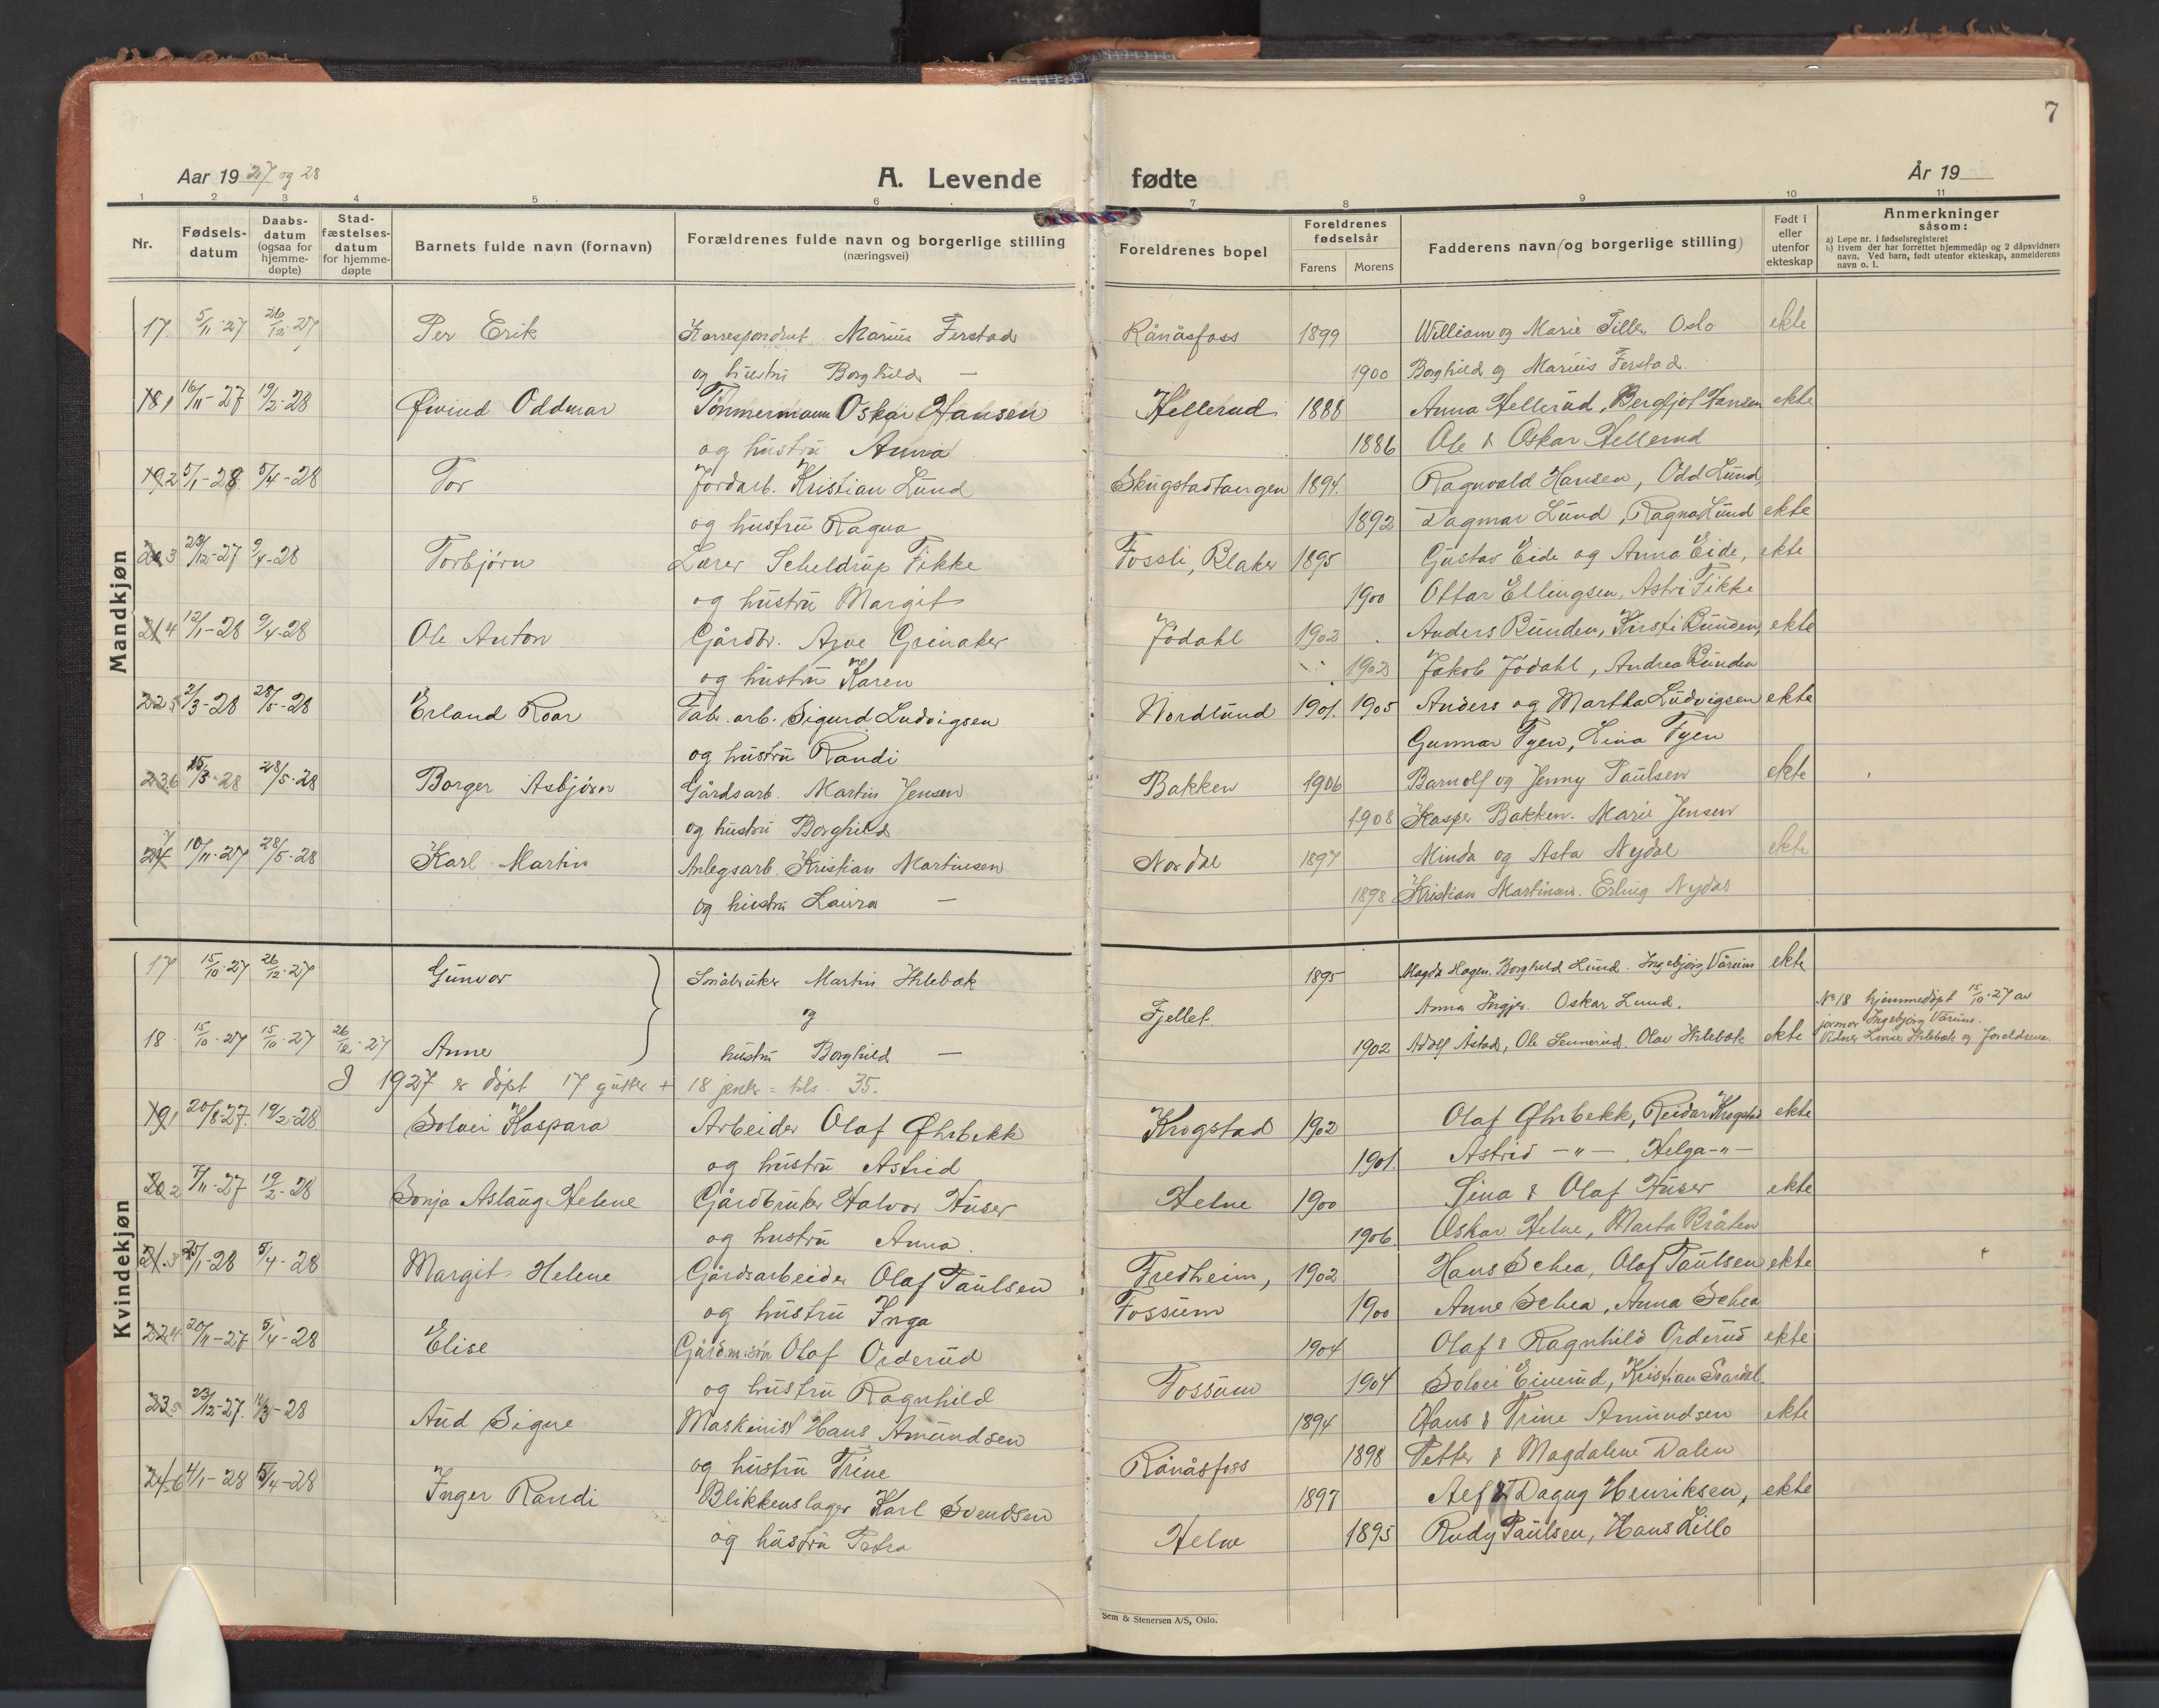 7
Aar 1927 og 28
A. Levende fødte
År 19
1 2 3 4 5 6 7 8 9 10 11
Nr.
Fødsels-datum
Daabs-datum (ogsaa for hjemme-døpte)
Stad-fæstelses-datum for hjemme-døpte
Barnets fulde navn (fornavn)
Forældrenes fulde navn og borgerlige stilling
(næringsvei)
Foreldrenes bopel
Foreldrenes fødselsår
Farens Morens
Fadderens navn (og borgerlige stilling)
Født i eller utenfor ekteskap
Anmerkninger
såsom:
a) Løpe nr. i fødselsregisteret
b) Hvem der har forrettet hjemmedåp og 2 dåpsvidners navn. Ved barn, født utenfor ekteskap, anmelderens navn o. l.
Mandkjøn
17. 5/11-27 26/12-27 Per Erik Korrespondent Marius Ferstad Rånåsfoss 1899 William og Marie Tiller Oslo ekte
og hustru Borghild — 1900 Borghild og Marius Ferstad.
18 1 16/11-27 19/2-28 Øivind Oddmar Tømmermann Oskar Hansen Hellerud 1888 Anna Hellerud, Bergljot Hansen ekte
og hustru Anna 1886 Ole & Oskar Hellerud
19 2 5/1-28. 5/4-28 Tor Jordarb. Kristian Lund Skugstadtangen 1894. Ragnvald Hansen, Odd Lund,
og hustru Ragna 1892 Dagmar Lund, Ragna Lund ekte
20 3 23/12-27 9/4-28 Torbjørn Lærer Scheldrup Fikke Fossli, Blaker 1895 Gustav Eide og Anna Eide, ekte
og hustru Margit 1900 Ottar Ellingsen, Astri Fikke
21 4 12/1-28 9/4-28 Ole Anton Gårdbr. Arve Grinaker Jødahl 1902 Anders Runden, Kirsti Runden, ekte
og hustru Karen 1902 Jakob Jødahl, Andrea Runden
22 5 2/3-28 28/5-28 Erland Roar Fab. arb. Sigurd Ludvigsen Nordlund 1901. 1905 Anders og Martha Ludvigsen ekte
og hustru Randi Gunnar Tyen, Lina Tyen
23 6 15/3-28 28/5-28 Borger Asbjørn Gårdsarb. Martin Jensen Bakken 1906 Barnolf og Jenny Paulsen ekte
og hustru Borghild 1908 Kasper Bakken. Marie Jensen
24 7 10/11-27 28/5-28 Karl Martin Anlegsarb. Kristian Martinsen Nordal 1897 Minda og Asta Nydal ekte
og hustru Laura — 1898 Kristian Martinsen. Erling Nydal
Kvindekjøn
17 15/10-27 26/12-27 Gunvor Småbruker Martin Holebæk 1895 Magda Hagen. Borghild Lund. Ingebjørg Vårum ekte
og Fjellet Anna Ingjer. Oskar Lund. No 18 hjemmedøpt 15/10-27 av
18 15/10-27 15/10-27 26/12-27 Anne hustru Borghild — 1902 Adolf Åstad, Ole Sennerud. Olav Holebæk ekte jormor Ingebjørg Vårum. Vidner Lovise Holebæk og foreldrene.
I 1927 er døpt 17 gutter + 18 jenter = tils. 35.
19 1 20/8-27. 19/2-28. Solvei Kaspara Arbeider Olaf Øhrbekk Krogstad 1902 Olaf Øhrbekk, Reidar Krogstad ekte
og hustru Astrid 1901. Astrid —"—, Helga —"—
20 2 7/11-27 19/2-28 Sonja Aslaug Helene Gårdbruker Halvor Huser Helne 1900 Lina & Olaf Huser ekte
og hustru Anna. 1906. Oskar Helne, Marta Bråten
21. 3 25/1-28 5/4-28 Margit Helene Gårdsarbeider Olaf Paulsen Fredheim, 1902 Hans Schea, Olaf Paulsen ekte
og hustru Inga Fossum 1900 Anne Schea, Anna Schea
22 4 20/11-27 5/4-28 Elise Gårdm.søn Olaf Orderud 1904 Olaf & Ragnhild Orderud ekte
og hustru Ragnhild Fossum 1904 Solvei Einerud, Kristian Svardal.
23 5 23/12-27. -28 Aud Signe Maskinist Hans Amundsen 1894 Hans & Trine Amundsen ekte
og hustru Trine Rånåsfoss 1898 Petter & Magdalene Dalen
24 6 4/1-28 5/4-28 Inger Randi Blikkenslager Karl Svendsen 1897 Alf & Dagny Henriksen, ekte
og hustru Petra Helne 1895 Rudy Paulsen, Hans Lillo
Sem & Stenersen A/S, Oslo.